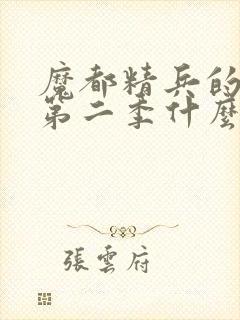 魔都精兵的
第二季什麼
張雲府